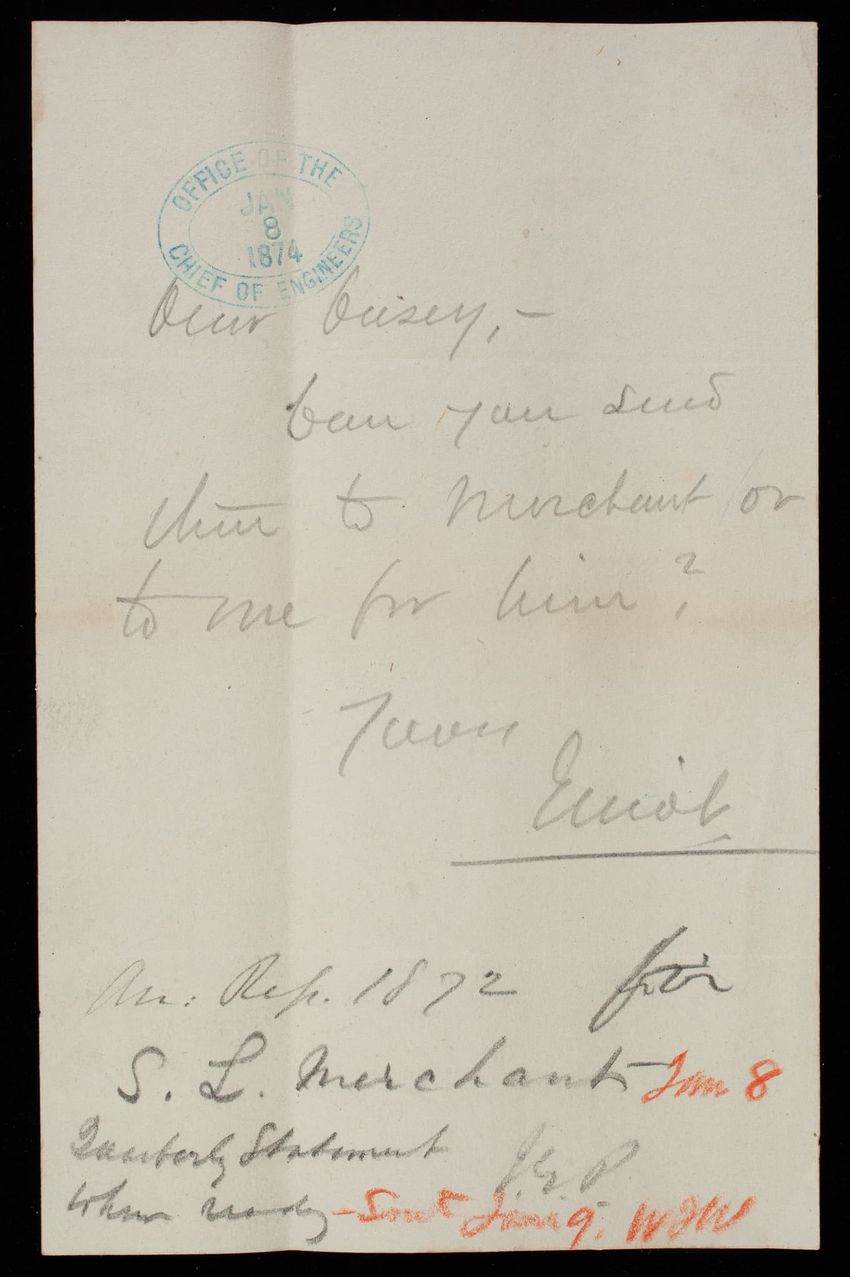 OFFICE OF THE
JAN
8
1874
CHIEF OF ENGINEERS
Dear Casey, -
Can you send
them to Merchant or
to me for him?
Yours
Elliot
An: Rep. 1872 for
S. L. Merchant Jan 8
Quarterly Statement
J. G. P
when ready - Sent Jan 9. WJW